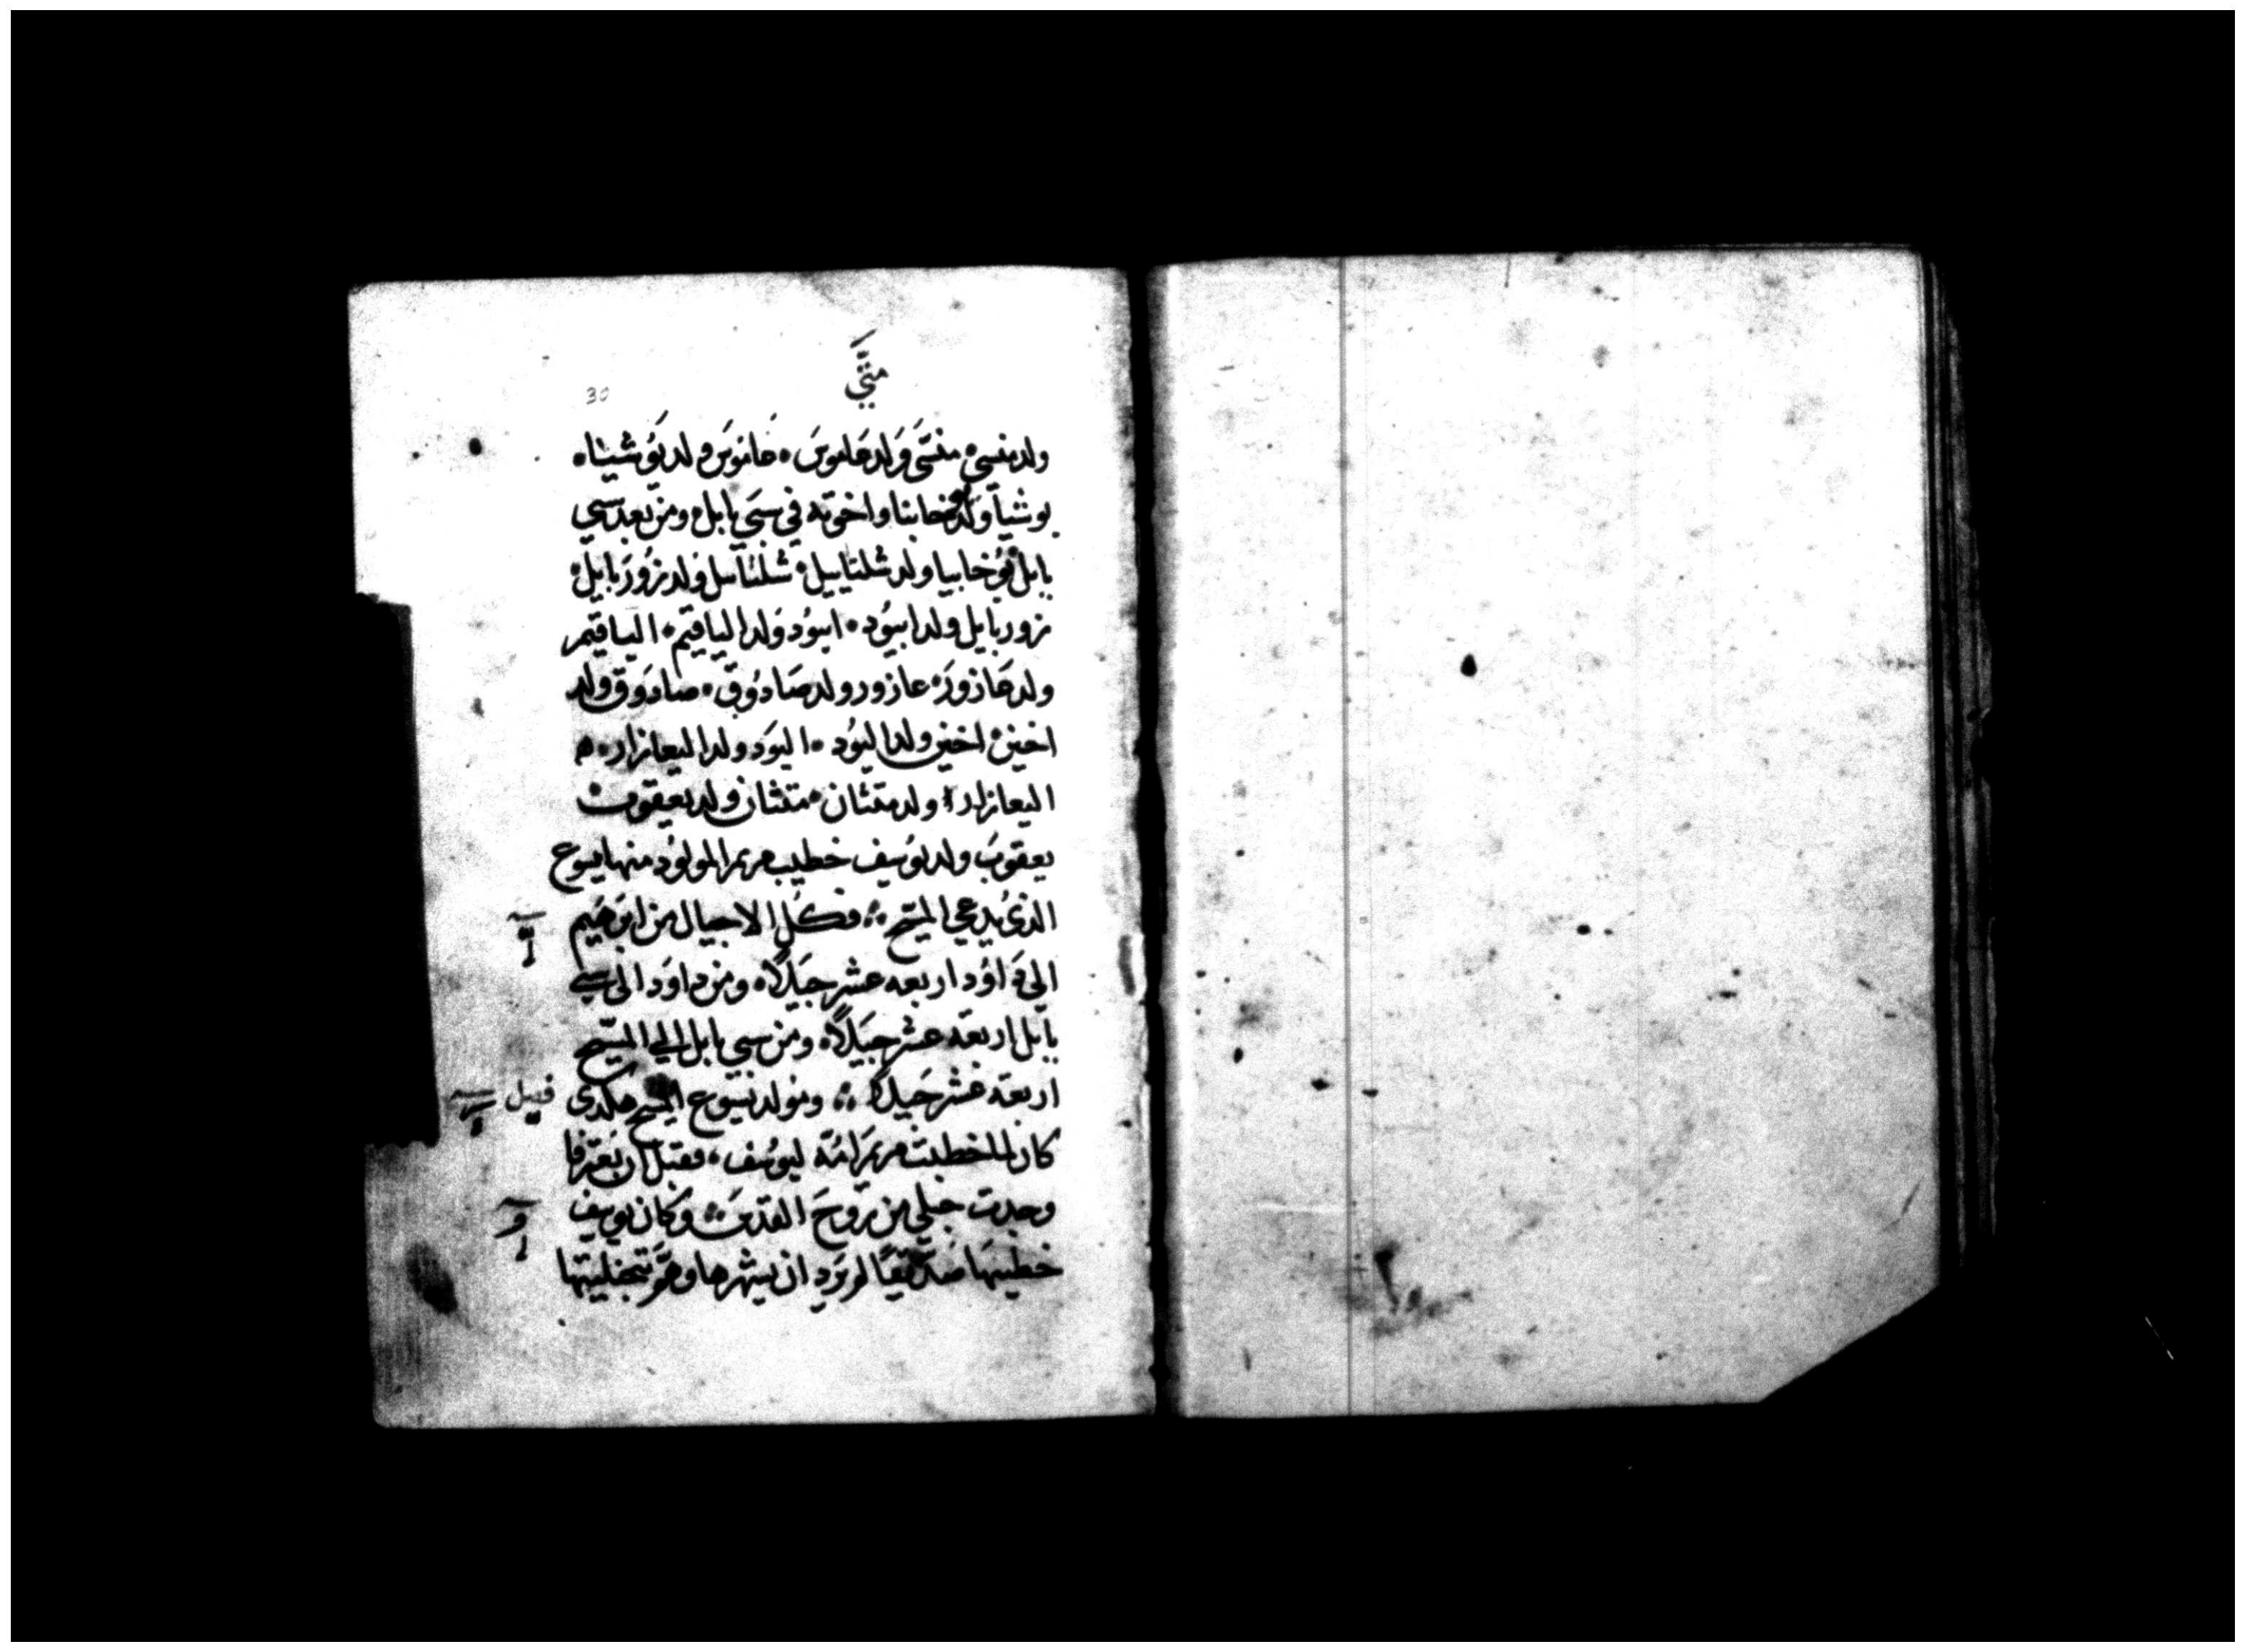 متَّي
30
ولد منسي ۰ منسَّى وَلد حَاموسَ ۰ حَاموسَ ولد يَوُشيا ۰
يوشيا ولد يخانيا واخوته في سَبي بابل ۰ ومن بعد سبي
بابل يُوخانيا ولد شلتاييل ۰ شلتاييل ولد زوُرَبابيل ۰
زوربابيل ولد ابيوُد ۰ ابيوُد ولد الياقيم ۰ الياقيم
ولد عَازورَ ۰ عازور ولد صَادوُق ۰ صادَوق ولد
اخين ۰ اخين ولد اليوُد ۰ اليوَد ولد اليعازار ۰
اليعازار ولد متثان ۰ متثان ولد يعقوب ۰
يعقوبَ ولد يوُسيف خطيب مريم المولوُد منها يسوع
الذي يُدعي المسيح ۰ فكل الاجيال من ابرَهَيم
الي دَاوُد اربعه عشر جَيلاً ۰ ومن داوَد الي سبي
بابل اربعَه عشر جيَلاً ۰ ومن سبي بابل الي المسيح
اربعَه عشر جَيلاً ۰ ومولد يَسوع المسيح هكدى
كان لما خطبت مريمَ امُّه ليوسُف ۰ فقبل ان يَعترفا
وجدت حبلي من روحَ القدسَ ۰ وكان يوسف
خطيبها صدّيقًا لم يرَد ان يشهرها وهَمَّ بتخليتها
فصل